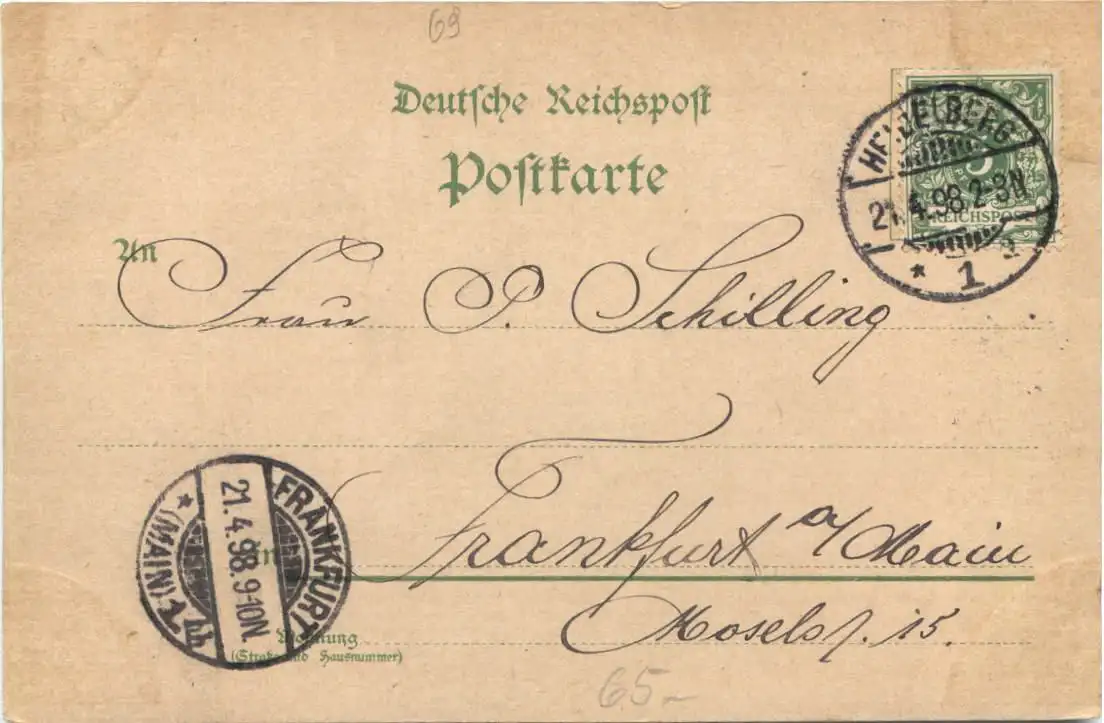 69
Deutsche Reichspost
Postkarte
HEIDELBERG
21.4.98.2-3N
* 1
5
REICHSPOST
An
Frau P. Schilling
in Frankfurt a/Main
Mosels. 15.
FRANKFURT
21.4.98.9-10N.
* (MAIN) 1
Wohnung
(Straße und Hausnummer)
65-